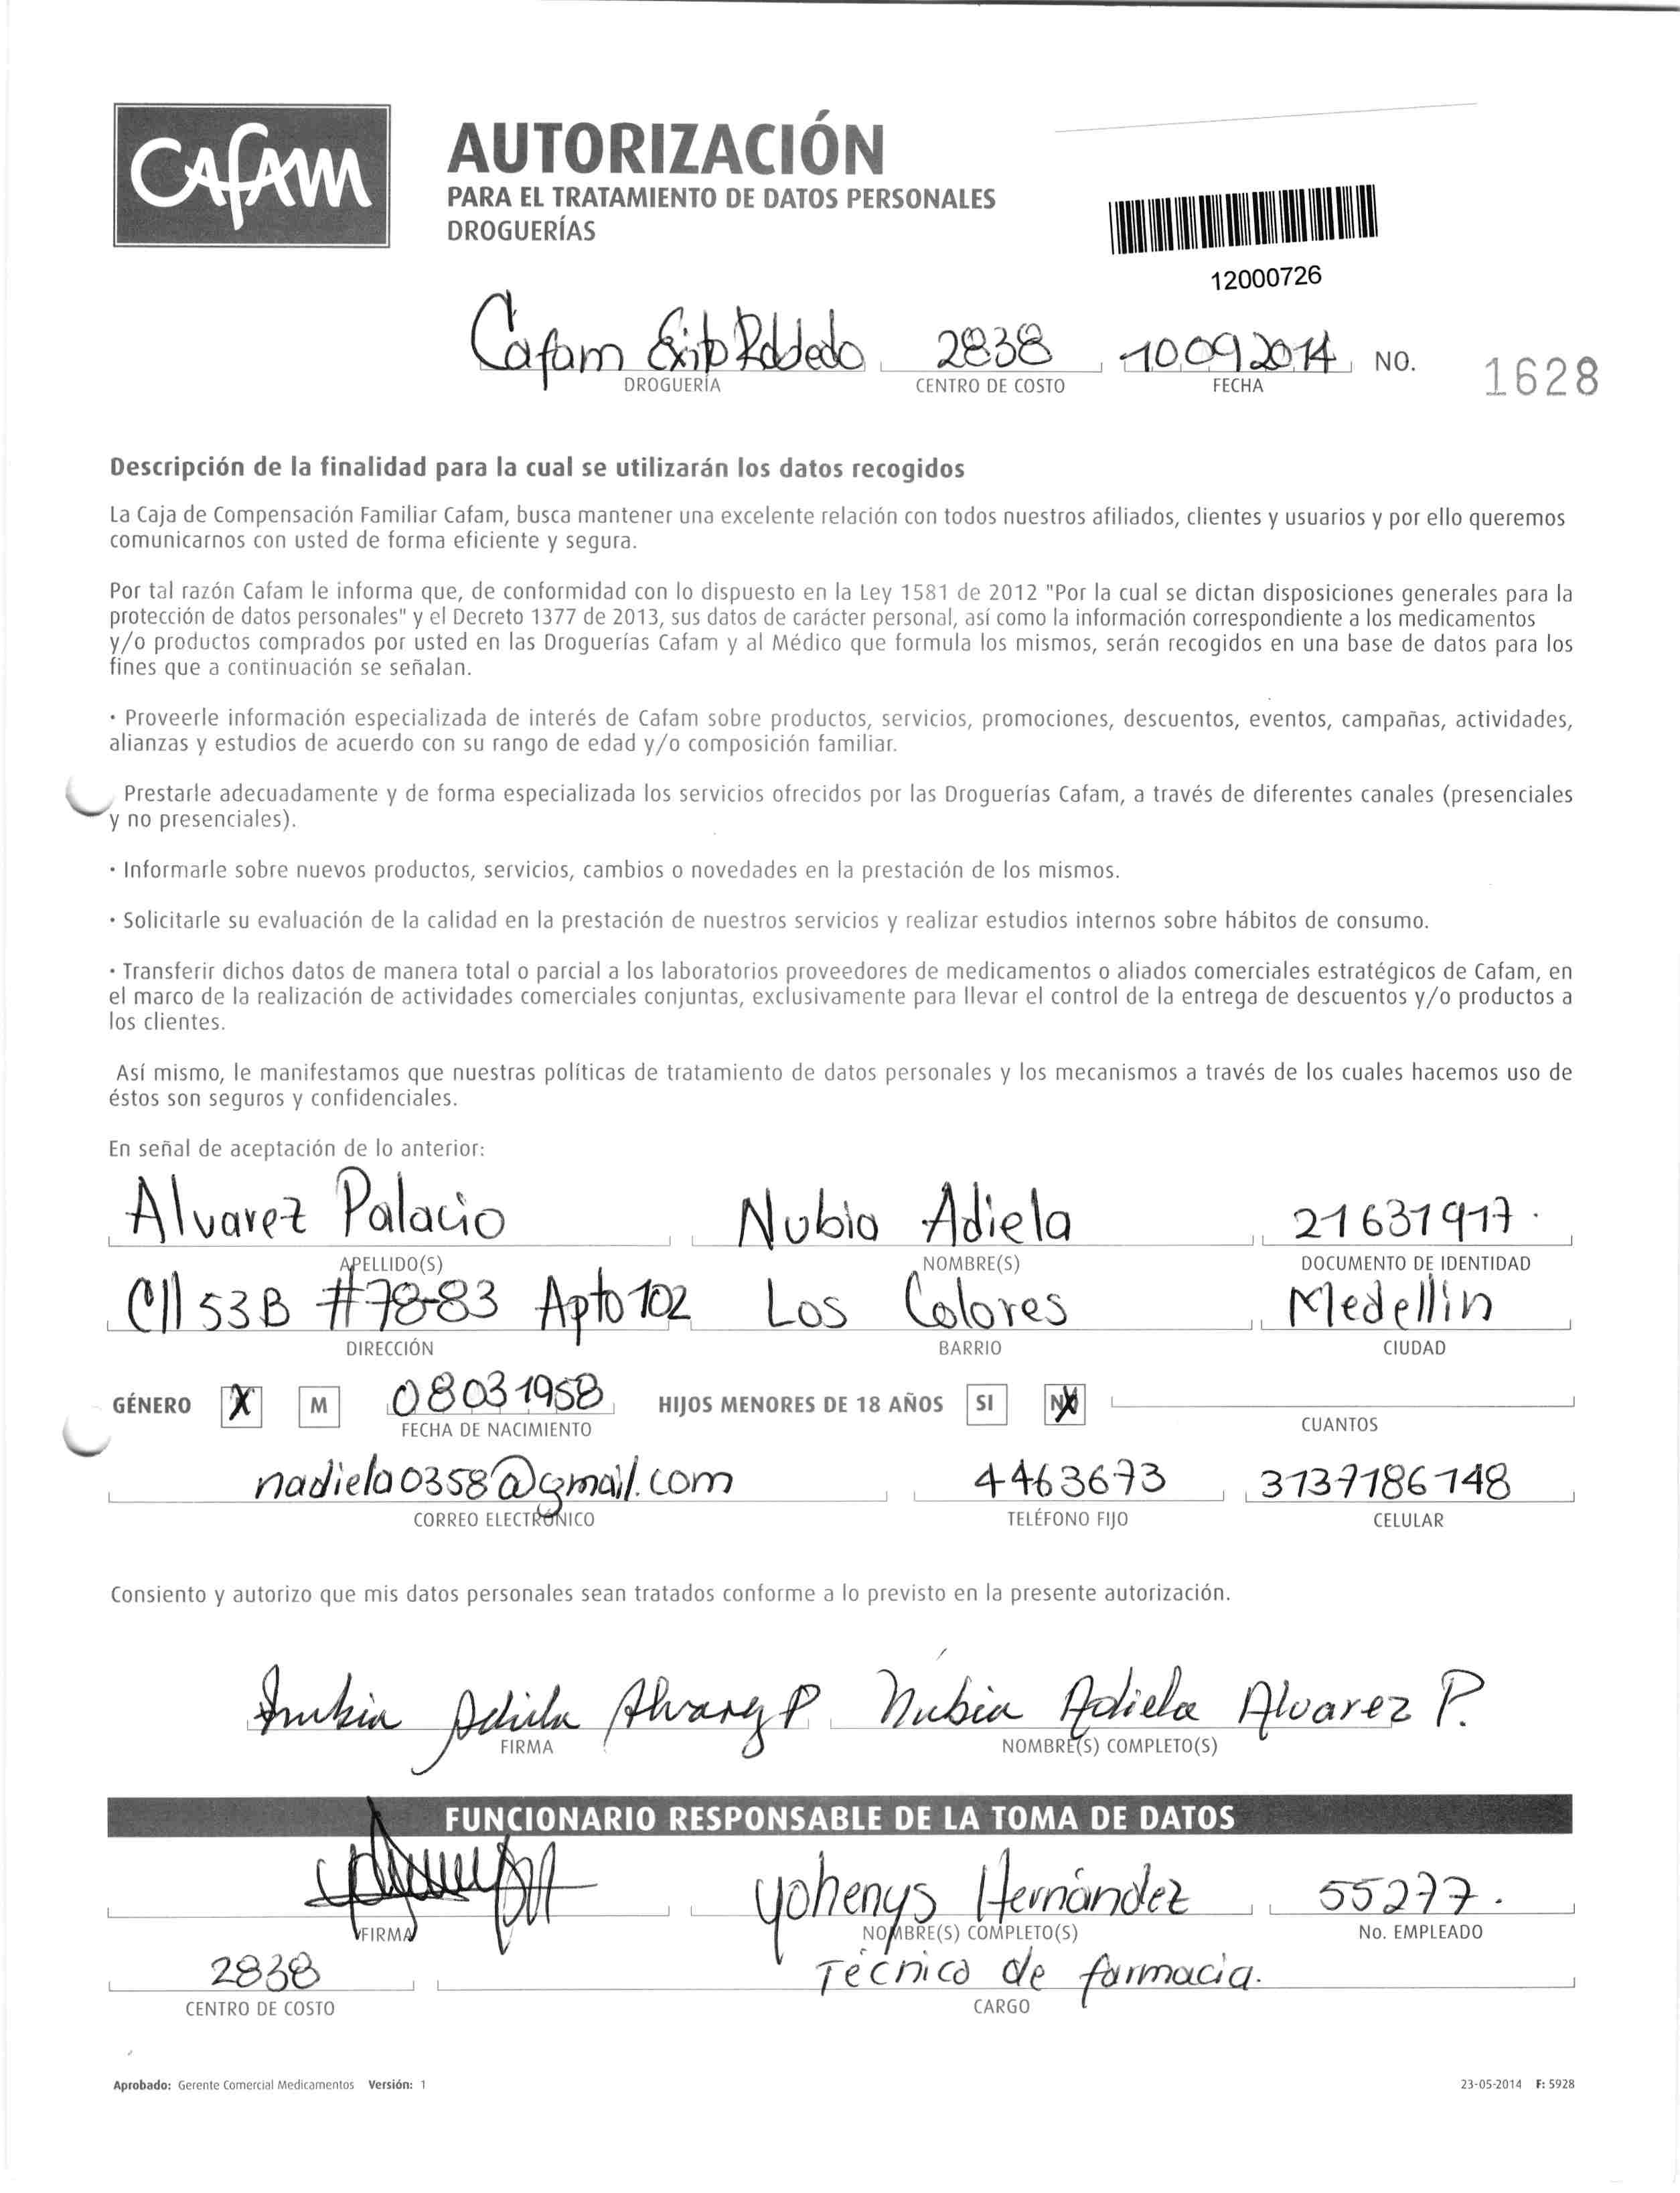 CAFAM
AUTORIZACIÓN
PARA EL TRATAMIENTO DE DATOS PERSONALES
DROGUERÍAS
12000726
Cafam Exito Robledo 2838 10 09 2014 NO. 1628
DROGUERÍA CENTRO DE COSTO FECHA
Descripción de la finalidad para la cual se utilizarán los datos recogidos
La Caja de Compensación Familiar Cafam, busca mantener una excelente relación con todos nuestros afiliados, clientes y usuarios y por ello queremos
comunicarnos con usted de forma eficiente y segura.
Por tal razón Cafam le informa que, de conformidad con lo dispuesto en la Ley 1581 de 2012 "Por la cual se dictan disposiciones generales para la
protección de datos personales" y el Decreto 1377 de 2013, sus datos de carácter personal, así como la información correspondiente a los medicamentos
y/o productos comprados por usted en las Droguerías Cafam y al Médico que formula los mismos, serán recogidos en una base de datos para los
fines que a continuación se señalan.
· Proveerle información especializada de interés de Cafam sobre productos, servicios, promociones, descuentos, eventos, campañas, actividades,
alianzas y estudios de acuerdo con su rango de edad y/o composición familiar.
Prestarle adecuadamente y de forma especializada los servicios ofrecidos por las Droguerías Cafam, a través de diferentes canales (presenciales
y no presenciales).
· Informarle sobre nuevos productos, servicios, cambios o novedades en la prestación de los mismos.
· Solicitarle su evaluación de la calidad en la prestación de nuestros servicios y realizar estudios internos sobre hábitos de consumo.
· Transferir dichos datos de manera total o parcial a los laboratorios proveedores de medicamentos o aliados comerciales estratégicos de Cafam, en
el marco de la realización de actividades comerciales conjuntas, exclusivamente para llevar el control de la entrega de descuentos y/o productos a
los clientes.
Así mismo, le manifestamos que nuestras políticas de tratamiento de datos personales y los mecanismos a través de los cuales hacemos uso de
éstos son seguros y confidenciales.
En señal de aceptación de lo anterior:
Alvarez Palacio Nubia Adiela 21631917.
APELLIDO(S) NOMBRE(S) DOCUMENTO DE IDENTIDAD
Cll 53B #78-83 Apto 102 Los Colores Medellin
DIRECCIÓN BARRIO CIUDAD
GÉNERO X M 08 03 1958 HIJOS MENORES DE 18 AÑOS SI NO X
FECHA DE NACIMIENTO CUANTOS
nadiela0358@gmail.com 4463673 3137186148
CORREO ELECTRÓNICO TELÉFONO FIJO CELULAR
Consiento y autorizo que mis datos personales sean tratados conforme a lo previsto en la presente autorización.
Nubia Adiela Alvarez P Nubia Adiela Alvarez P.
FIRMA NOMBRE(S) COMPLETO(S)
FUNCIONARIO RESPONSABLE DE LA TOMA DE DATOS
Yohenys Hernández 55277.
FIRMA NOMBRE(S) COMPLETO(S) No. EMPLEADO
2838 Técnico de farmacia.
CENTRO DE COSTO CARGO
Aprobado: Gerente Comercial Medicamentos Versión: 1 23-05-2014 F: 5928